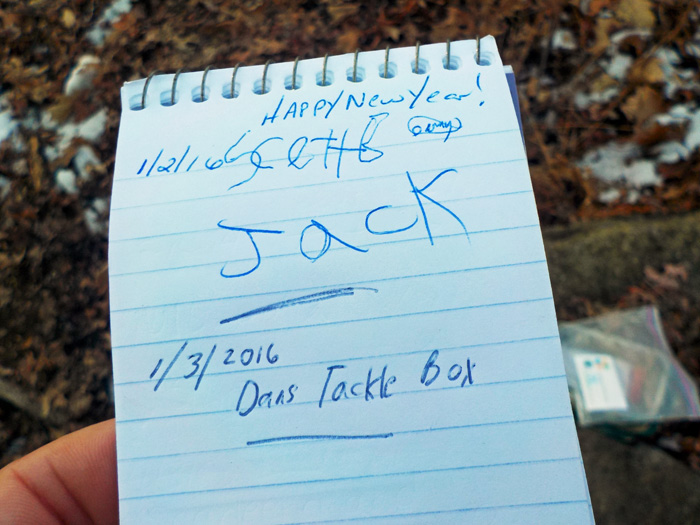 HAPPY New Year!
1/2/16
Jack
1/3/2016
Dans Tackle Box